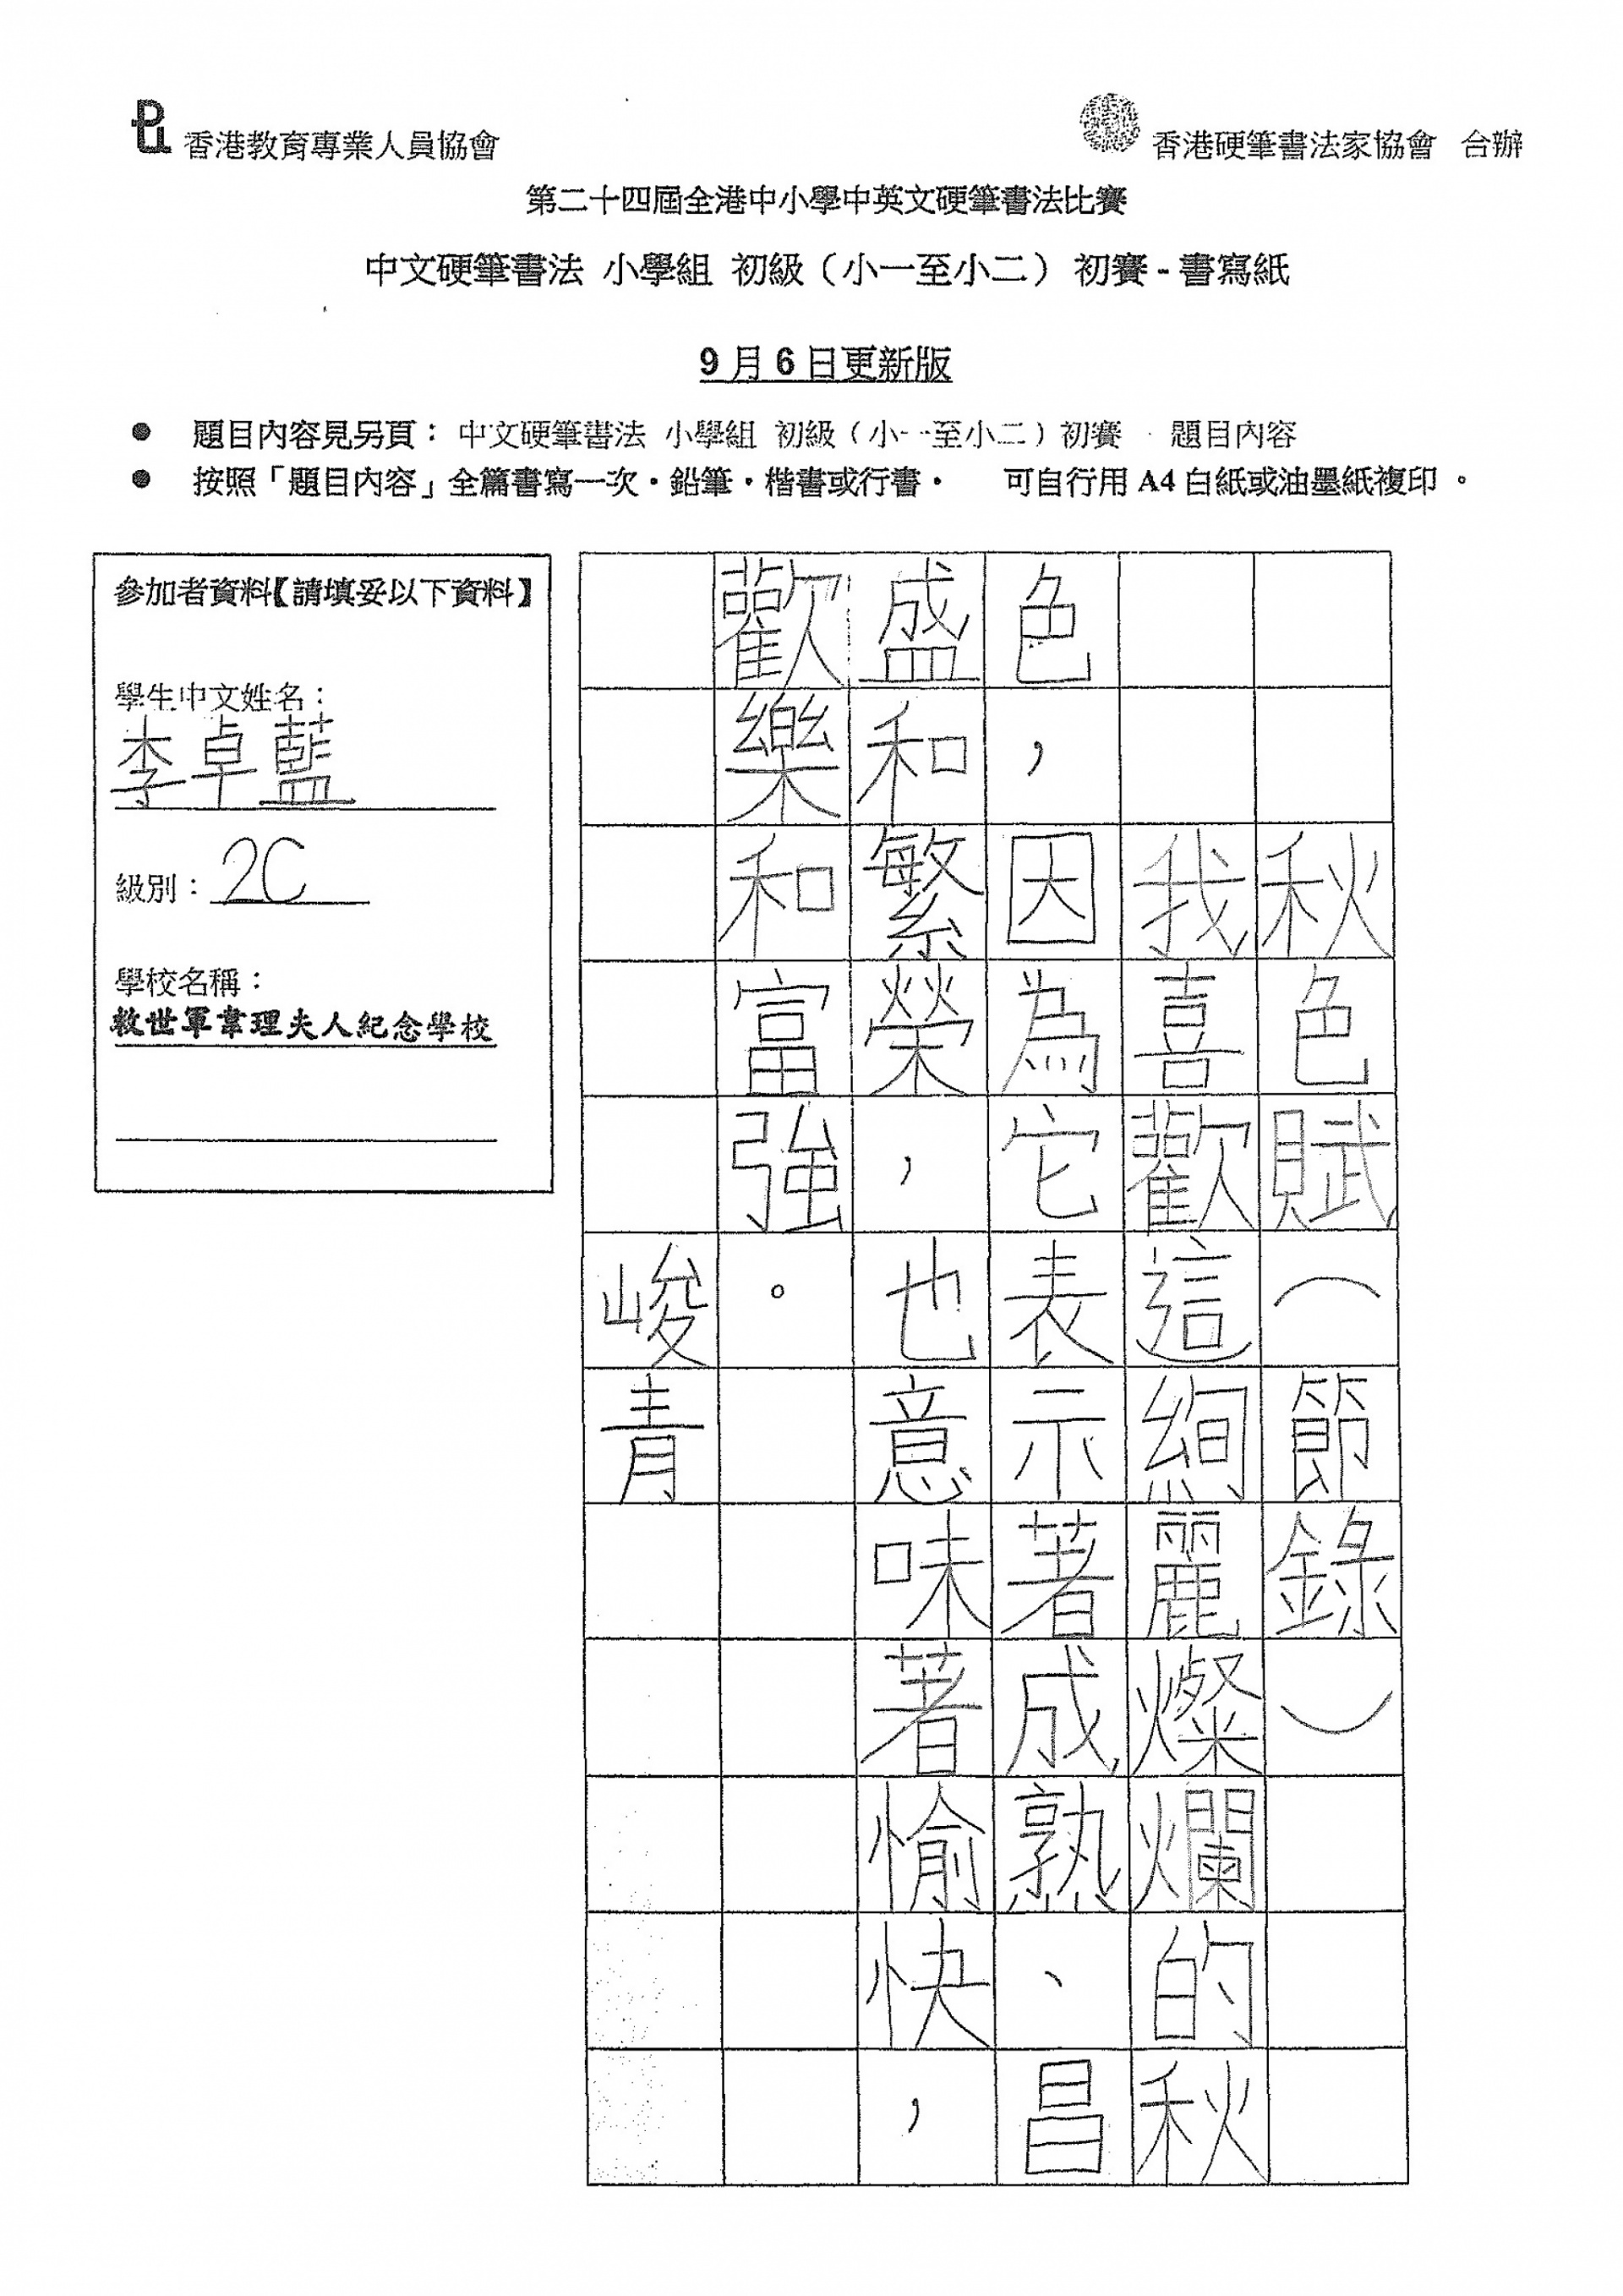 香港教育專業人員協會
香港硬筆書法家協會 合辦
第二十四屆全港中小學中英文硬筆書法比賽
中文硬筆書法 小學組 初級（小一至小二） 初賽 - 書寫紙
9 月 6 日更新版
● 題目內容見另頁： 中文硬筆書法 小學組 初級（小一至小二）初賽 - 題目內容
● 按照「題目內容」全篇書寫一次・鉛筆・楷書或行書・ 可自行用 A4 白紙或油墨紙複印 。
參加者資料【請填妥以下資料】
學生中文姓名：
李卓藍
級別： 2C
學校名稱：
救世軍韋理夫人紀念學校
秋色賦（節錄）
我喜歡這絢麗燦爛的秋
色，因為它表示著成熟、昌
盛和繁榮，也意味著愉快，
歡樂和富強。
峻青